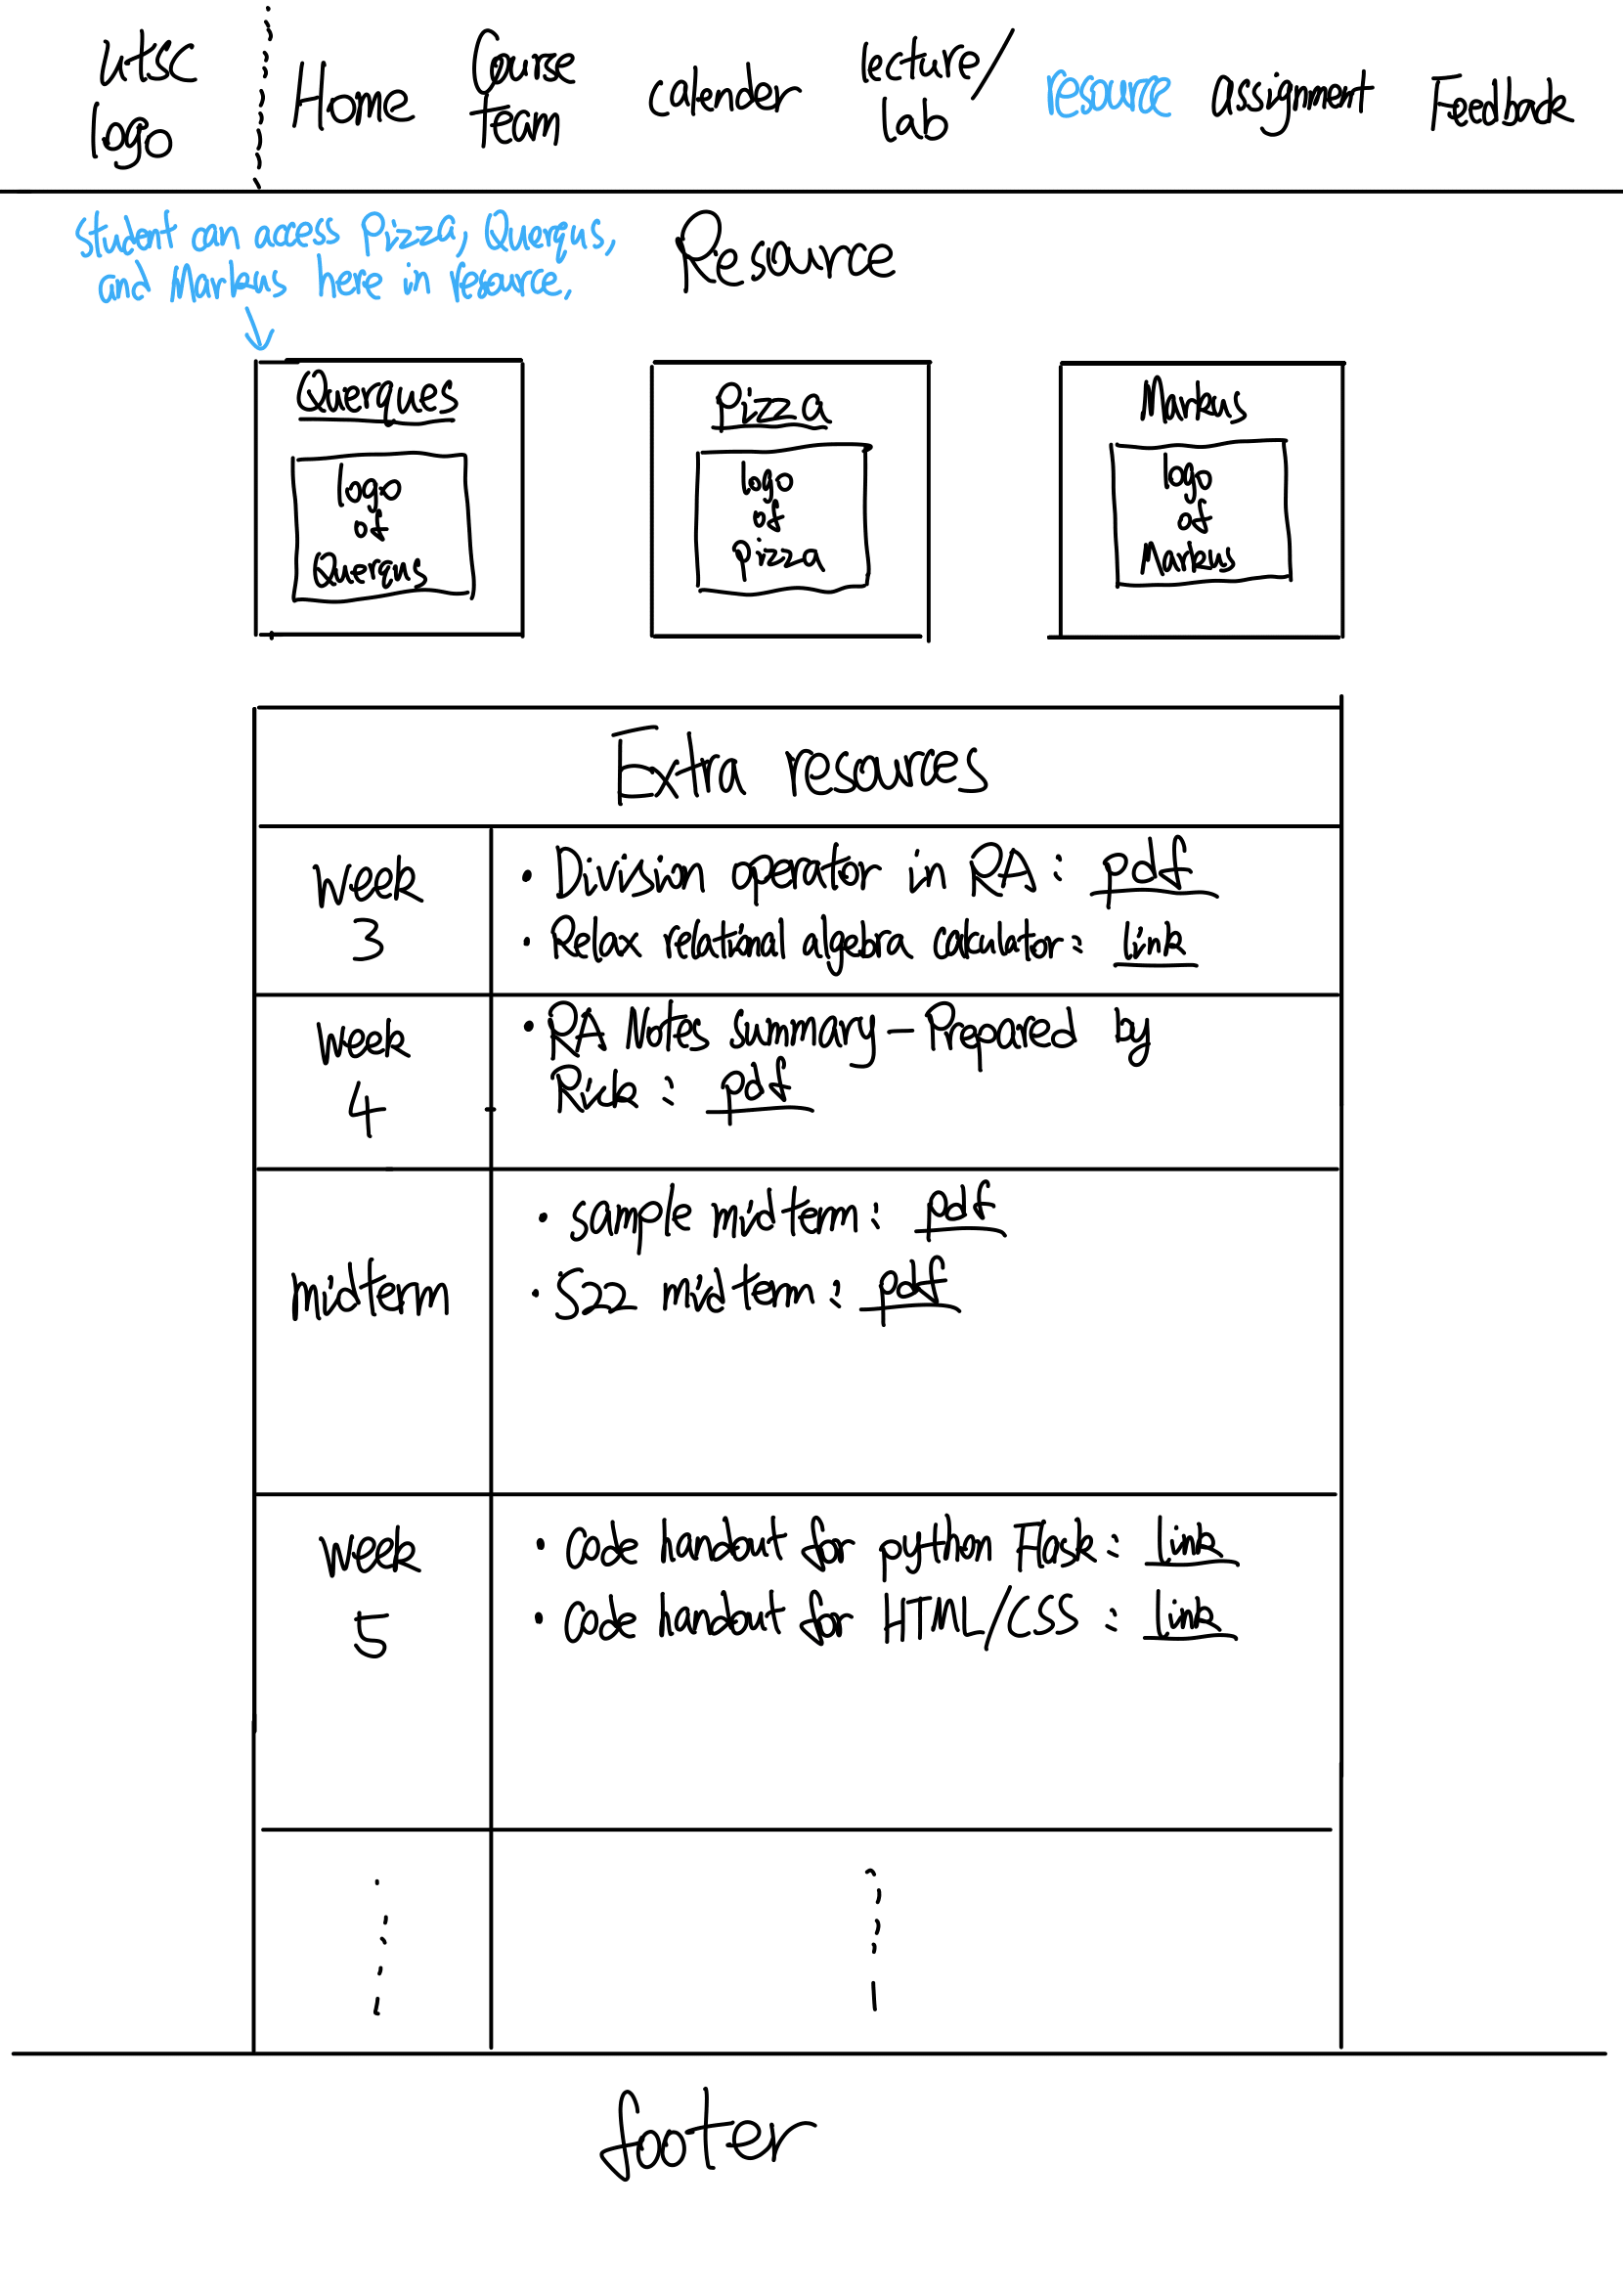 utsc
logo
Home
Course
team
calender
lecture/
lab
resource
assignment
Feedback
student can access Pizza, Querqus,
and Markus here in resource.
Resource
Querques
logo
of
Querqus
Pizza
logo
of
Pizza
Markus
logo
of
Markus
Extra resources
Week
3
• Division operator in RA: pdf
• Relax relational algebra calculator: Link
week
4
• RA Notes summary - Prepared by
Rick: pdf
midterm
• sample midterm: pdf
• S22 midterm: pdf
Week
5
• Code handout for python Flask: Link
• Code handout for HTML/CSS: Link
footer